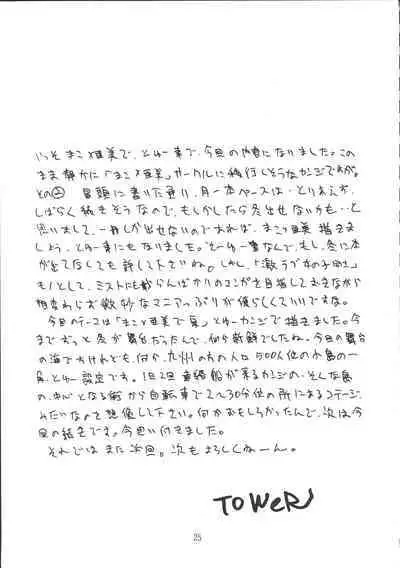 いっそまこ×亜美で、とゆー事で、今回の内容になりました。この
まま静かに「まこ×亜美」サークルに移行しそうなカンジですが。
その上 冒頭に書いた通り、月一本ペースは、とりあえず、
しばらく続きそうなので、もしかしたら冬出せないかも…と
思いまして、一冊しか出せないのであれば、まこ×亜美描きま
しょう、とゆー事にもなりました。そーゆー事なんで、もし、冬に本
が出てなくても許して下さいね。しかし、「激ラブ女の子同士」
ものとして、ミストにも載らんばかりのマンガを目指しておきながら
相変わらず微妙なマニアっぷりが優らしくていいですな。
今回のテーマは「まこ×亜美で夏」とゆーカンジで描きました。今
までずっと冬が舞台だったんで、何か新鮮でしたね。今回の舞台
の海ですけれども、何か、九州の方の人口500人位の小島の一
角、とゆー設定です。1日2回連絡船が来るカンジの、そんな島
の中心となる街から自転車で2〜30分位の所にあるコテージ、
みたいなので想像して下さい。何かおもしろかったんで、次は今
回の続きです。今思い付きました。
それではまた次回。次もよろしくねーん。
TOWeR
25